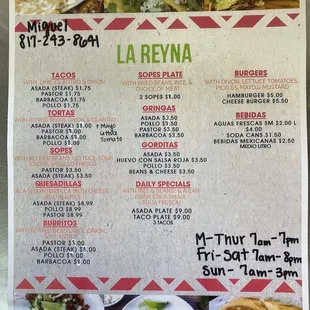 Miguel
817-243-8641
LA REYNA
TACOS
WITH LIME, CILANTRO & ONION
ASADA (STEAK) $1.75
PASTOR $1.75
BARBACOA $1.75
POLLO $1.75
TORTAS
ASADA (STEAK)
POLLO
PASTOR
BARBACOA
+ Mayo
Lettuce
Tomato
SOPES
WITH REFRIED BEANS, LETTUCE, SOUR
PASTOR $3.50
ASADA (STEAK) $3.50
QUESADILLAS
ASADA (STEAK) $8.99
POLLO $8.99
PASTOR $8.99
BURRITOS
PASTOR
ASADA (STEAK)
POLLO
BARBACOA
SOPES PLATE
WITH FRIED BEANS, RICE, &
CHOICE OF MEAT
2 SOPES $8.00
GRINGAS
ASADA $3.50
POLLO $3.50
PASTOR $3.50
BARBACOA $3.50
GORDITAS
ASADA $3.50
HUEVO CON SALSA ROJA $3.50
POLLO $3.50
BEANS & CHEESE $3.50
DAILY SPECIALS
WITH RICE & BEANS & A CAN
DRINK OR A SMALL
AQUA FRESCA
ASADA PLATE $9.00
TACO PLATE $9.00
3 TACOS
BURGERS
WITH ONION, LETTUCE, TOMATOES,
PICKLES, MAYO & MUSTARD
HAMBURGER $5.00
CHEESE BURGER $5.50
BEBIDAS
AGUAS FRESCAS SM $2.00 L
$4.00
SODA CANS $1.50
BEBIDAS MEXICANAS $2.50
MEDIO LITRO
M-Thur 7am-7pm
Fri-Sat 7am-8pm
Sun- 7am-3pm